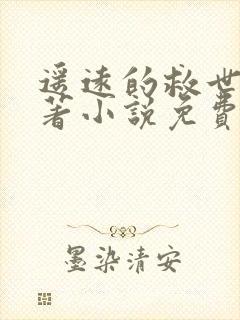 遥远的救世
著小说免费
墨染清安